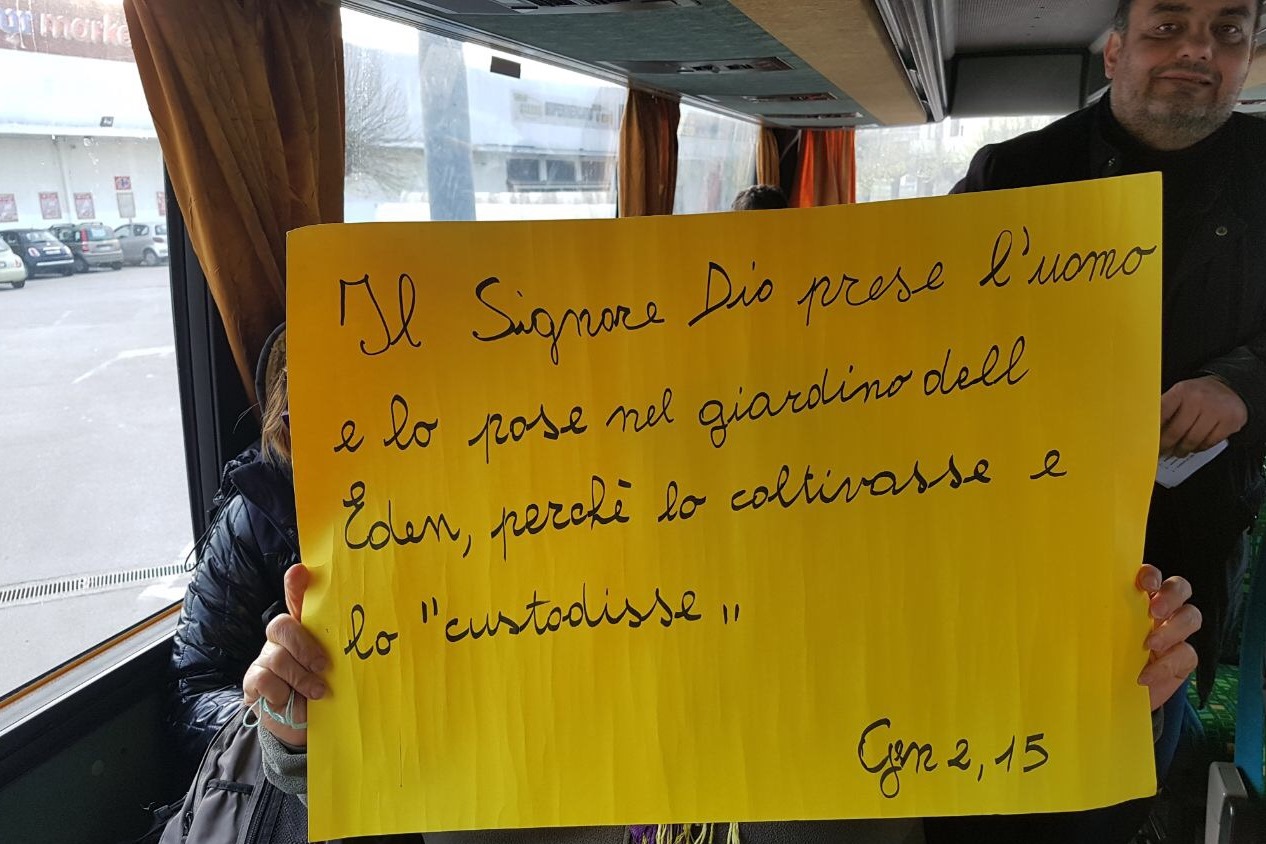 Il Signore Dio prese l'uomo
e lo pose nel giardino dell
Eden, perchè lo coltivasse e
lo "custodisse"
Gen 2, 15